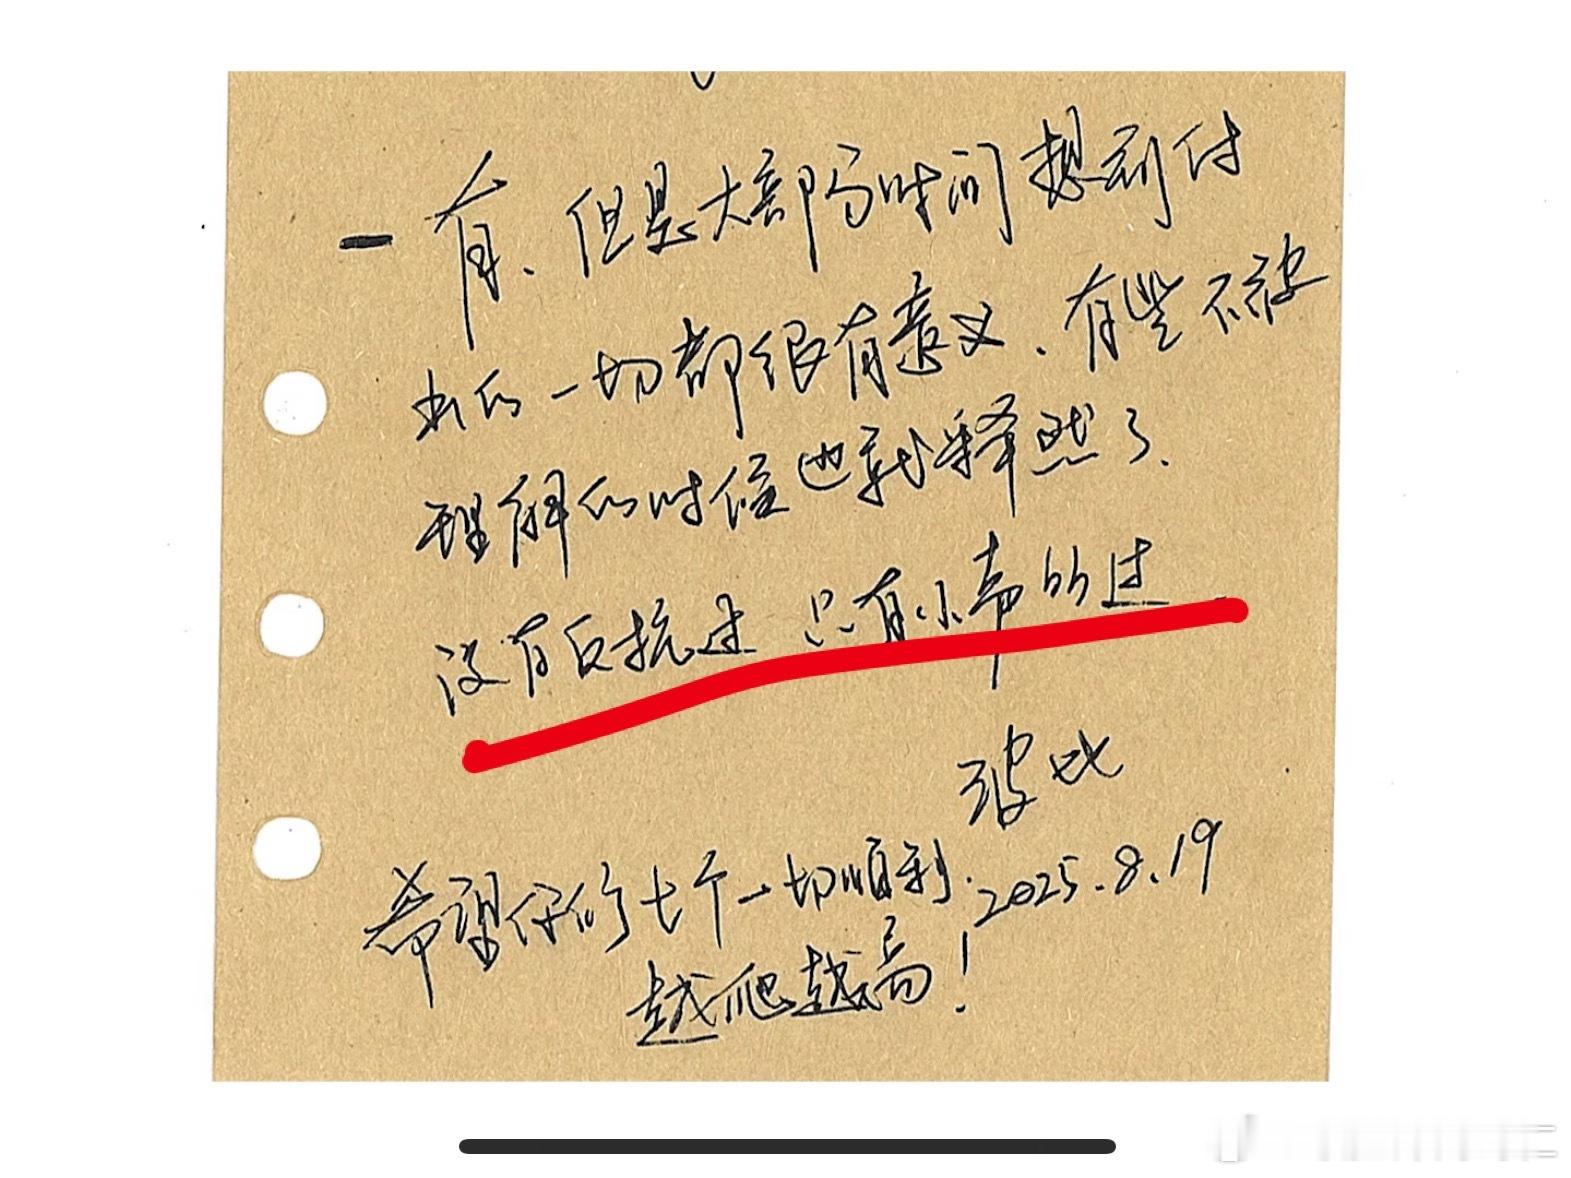 一有、但是大部分时间想到付
出的一切都很有意义、有些不被
理解的时候也就释然了、
没有反抗过 只有小声的过
波比
希望你们七个一切顺利.
2025.8.19
越爬越高!